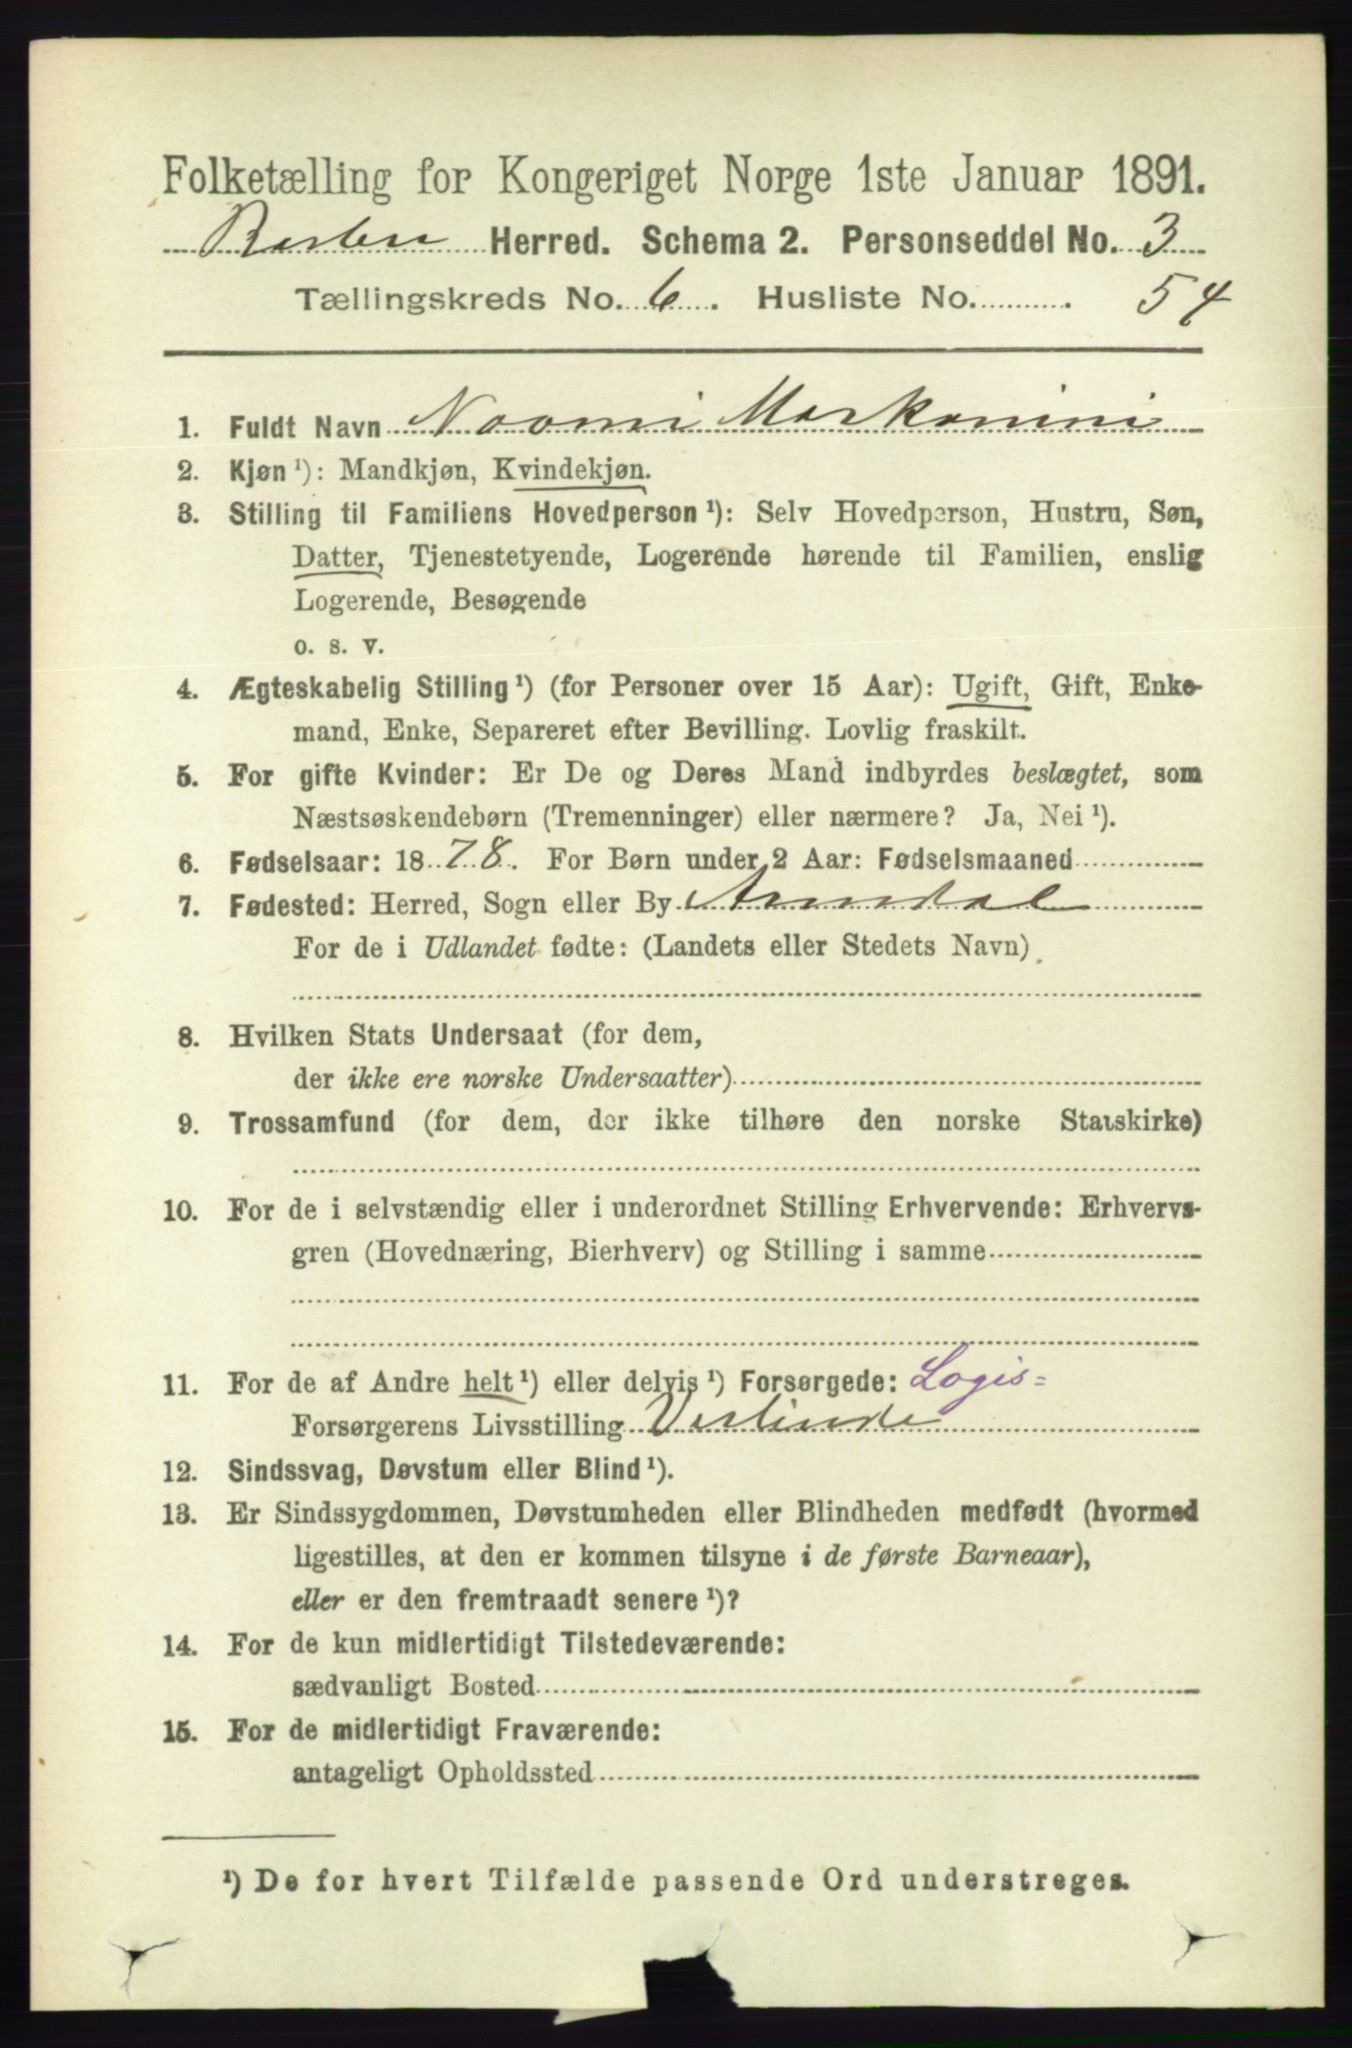 Folketælling for Kongeriget Norge 1ste Januar 1891.
Herred. Schema 2. Personseddel No. 3
Tællingskreds No. 6. Husliste No. . 54
1. Fuldt Navn Naomi
2. Kjøn ¹): Mandkjøn, Kvindekjøn.
3. Stilling til Familiens Hovedperson ¹): Selv Hovedperson, Hustru, Søn,
Datter, Tjenestetyende, Logerende hørende til Familien, enslig
Logerende, Besøgende
o. s. v.
4. Ægteskabelig Stilling ¹) (for Personer over 15 Aar): Ugift, Gift, Enke-
mand, Enke, Separeret efter Bevilling. Lovlig fraskilt.
5. For gifte Kvinder: Er De og Deres Mand indbyrdes beslægtet, som
Næstsøskendebørn (Tremenninger) eller nærmere? Ja, Nei ¹).
6. Fødselsaar: 1878. For Børn under 2 Aar: Fødselsmaaned
7. Fødested: Herred, Sogn eller By Arendal
For de i Udlandet fødte: (Landets eller Stedets Navn)
8. Hvilken Stats Undersaat (for dem,
der ikke ere norske Undersaatter)
9. Trossamfund (for dem, der ikke tilhøre den norske Statskirke)
10. For de i selvstændig eller i underordnet Stilling Erhvervende: Erhvervs-
gren (Hovednæring, Bierhverv) og Stilling i samme
11. For de af Andre helt ¹) eller delvis ¹) Forsørgede: Logis=
Forsørgerens Livsstilling Vertinde
12. Sindssvag, Døvstum eller Blind ¹).
13. Er Sindssygdommen, Døvstumheden eller Blindheden medfødt (hvormed
ligestilles, at den er kommen tilsyne i de første Barneaar),
eller er den fremtraadt senere ¹)?
14. For de kun midlertidigt Tilstedeværende:
sædvanligt Bosted
15. For de midlertidigt Fraværende:
antageligt Opholdssted
¹) De for hvert Tilfælde passende Ord understreges.